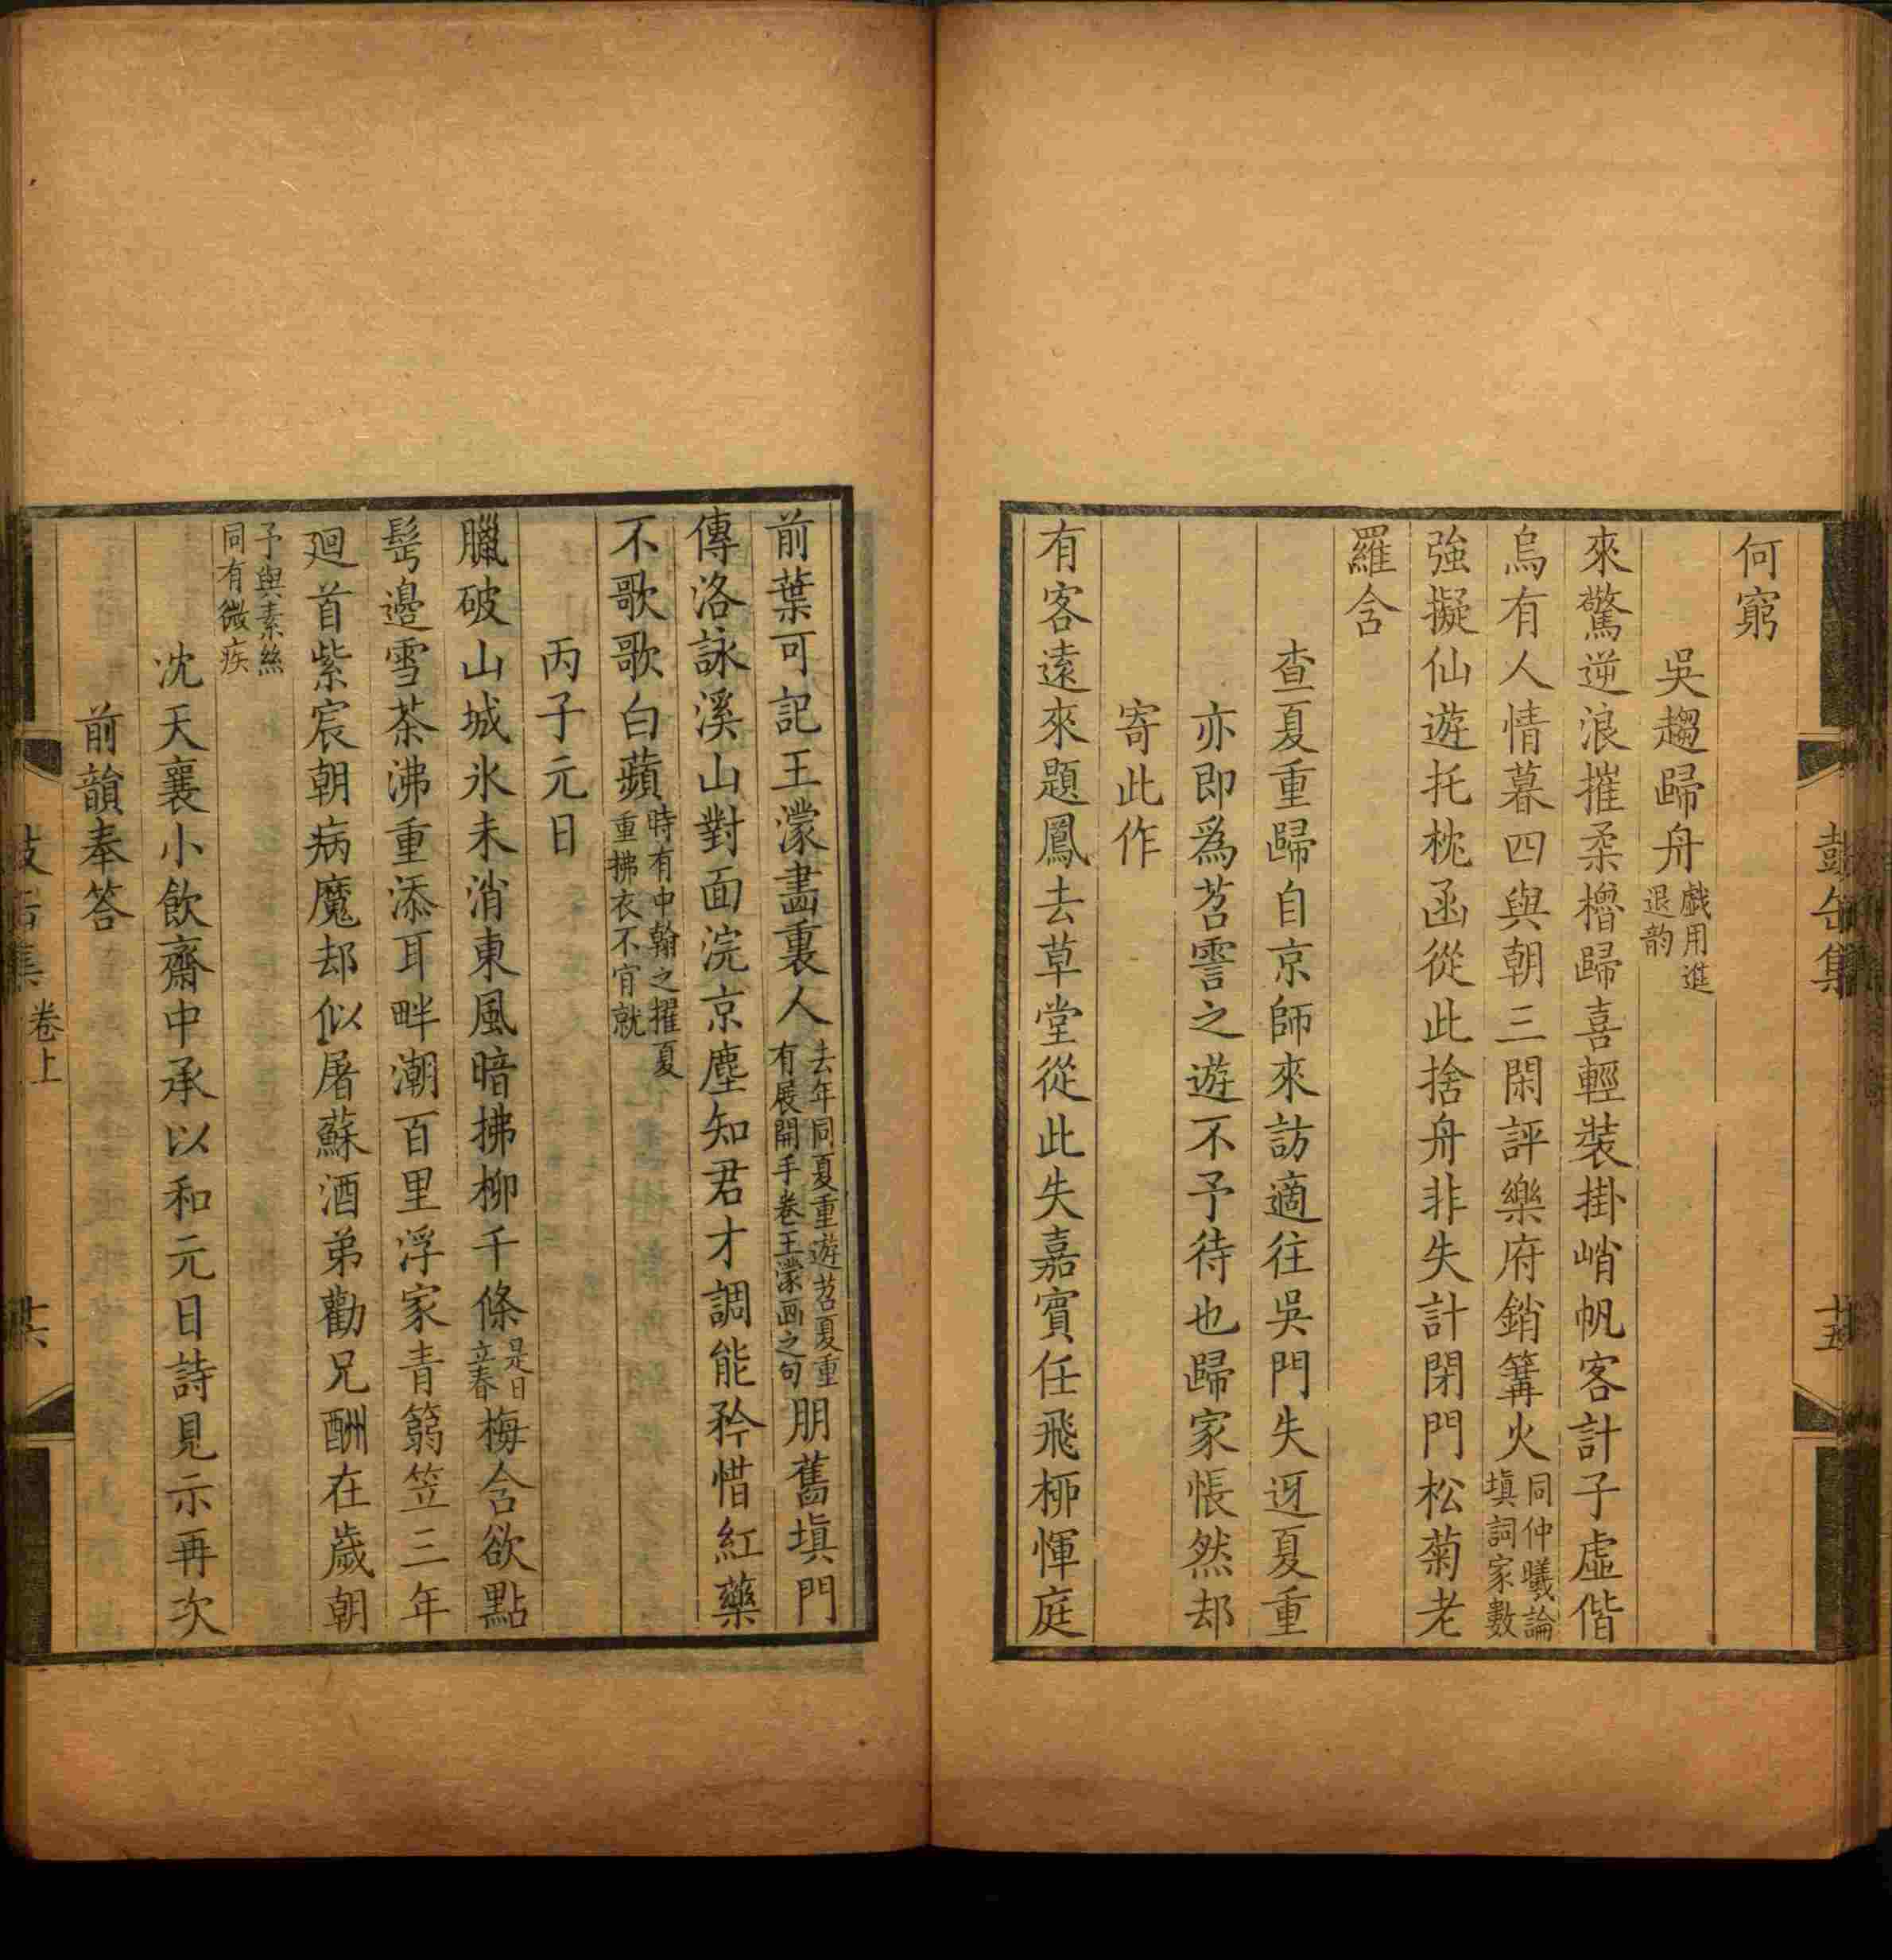 何窮
吳趨歸舟戲用進退韵
來驚逆浪摧柔櫓歸喜輕裝掛峭帆客計子虛偕
烏有人情暮四與朝三閑評樂府銷篝火同仲曦論填詞家數
強擬仙遊托枕函從此捨舟非失計閉門松菊老
羅含
查夏重歸自京師來訪適往吳門失迓夏重
亦即爲苕霅之遊不予待也歸家悵然却
寄此作
有客遠來題鳳去草堂從此失嘉賓任飛柳惲庭
前葉可記王濛畫裏人去年同夏重遊苕夏重有展開手卷王濛画之句朋舊塡門
傳洛詠溪山對面浣京塵知君才調能矜惜紅藥
不歌歌白蘋時有中翰之擢夏重拂衣不肎就
丙子元日
臘破山城氷未消東風暗拂柳千條是日立春梅含欲點
髩邊雪茶沸重添耳畔潮百里浮家青篛笠三年
廻首紫宸朝病魔却似屠蘇酒弟勸兄酬在歲朝
予與素絲同有微疾
沈天襄小飲齋中承以和元日詩見示再次
前韻奉答
卷上